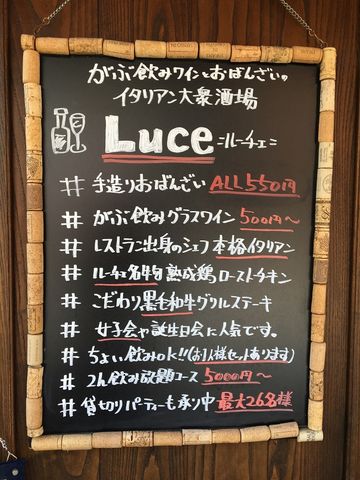 がぶ飲みワインとおばんざいの
イタリアン大衆酒場
Luce =ルーチェ=
# 手造りおばんざい ALL550円
# がぶ飲みグラスワイン 500円〜
# レストラン出身のシェフ 本格イタリアン
# ルーチェ名物 熟成鶏ローストチキン
# こだわり黒毛和牛グリルステーキ
# 女子会や誕生日会に人気です。
# ちょい飲みOK!!(お1人様セットあります)
# 2h飲み放題コース 5000円〜
# 貸切りパーティーも承り中 最大26名様